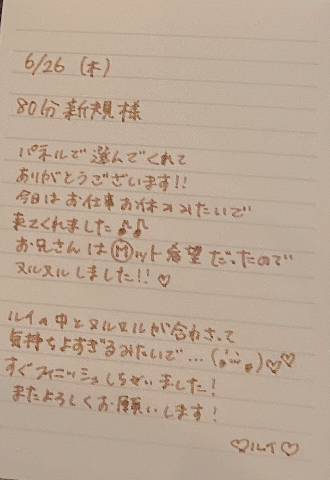 6/26 (木)
80分 新規様
パネルで 選んでくれて
ありがとうございます!!
今日は お仕事 お休みみたいで
来てくれました♪♪
お兄さんは Ⓜット希望 だったので
ヌルヌルしました!! ♡
ルイの 中と ヌルヌルが合わさって
気持ちよすぎるみたいで…
すぐフィニッシュしちゃいました!
またよろしくお願いします!
♡ルイ♡